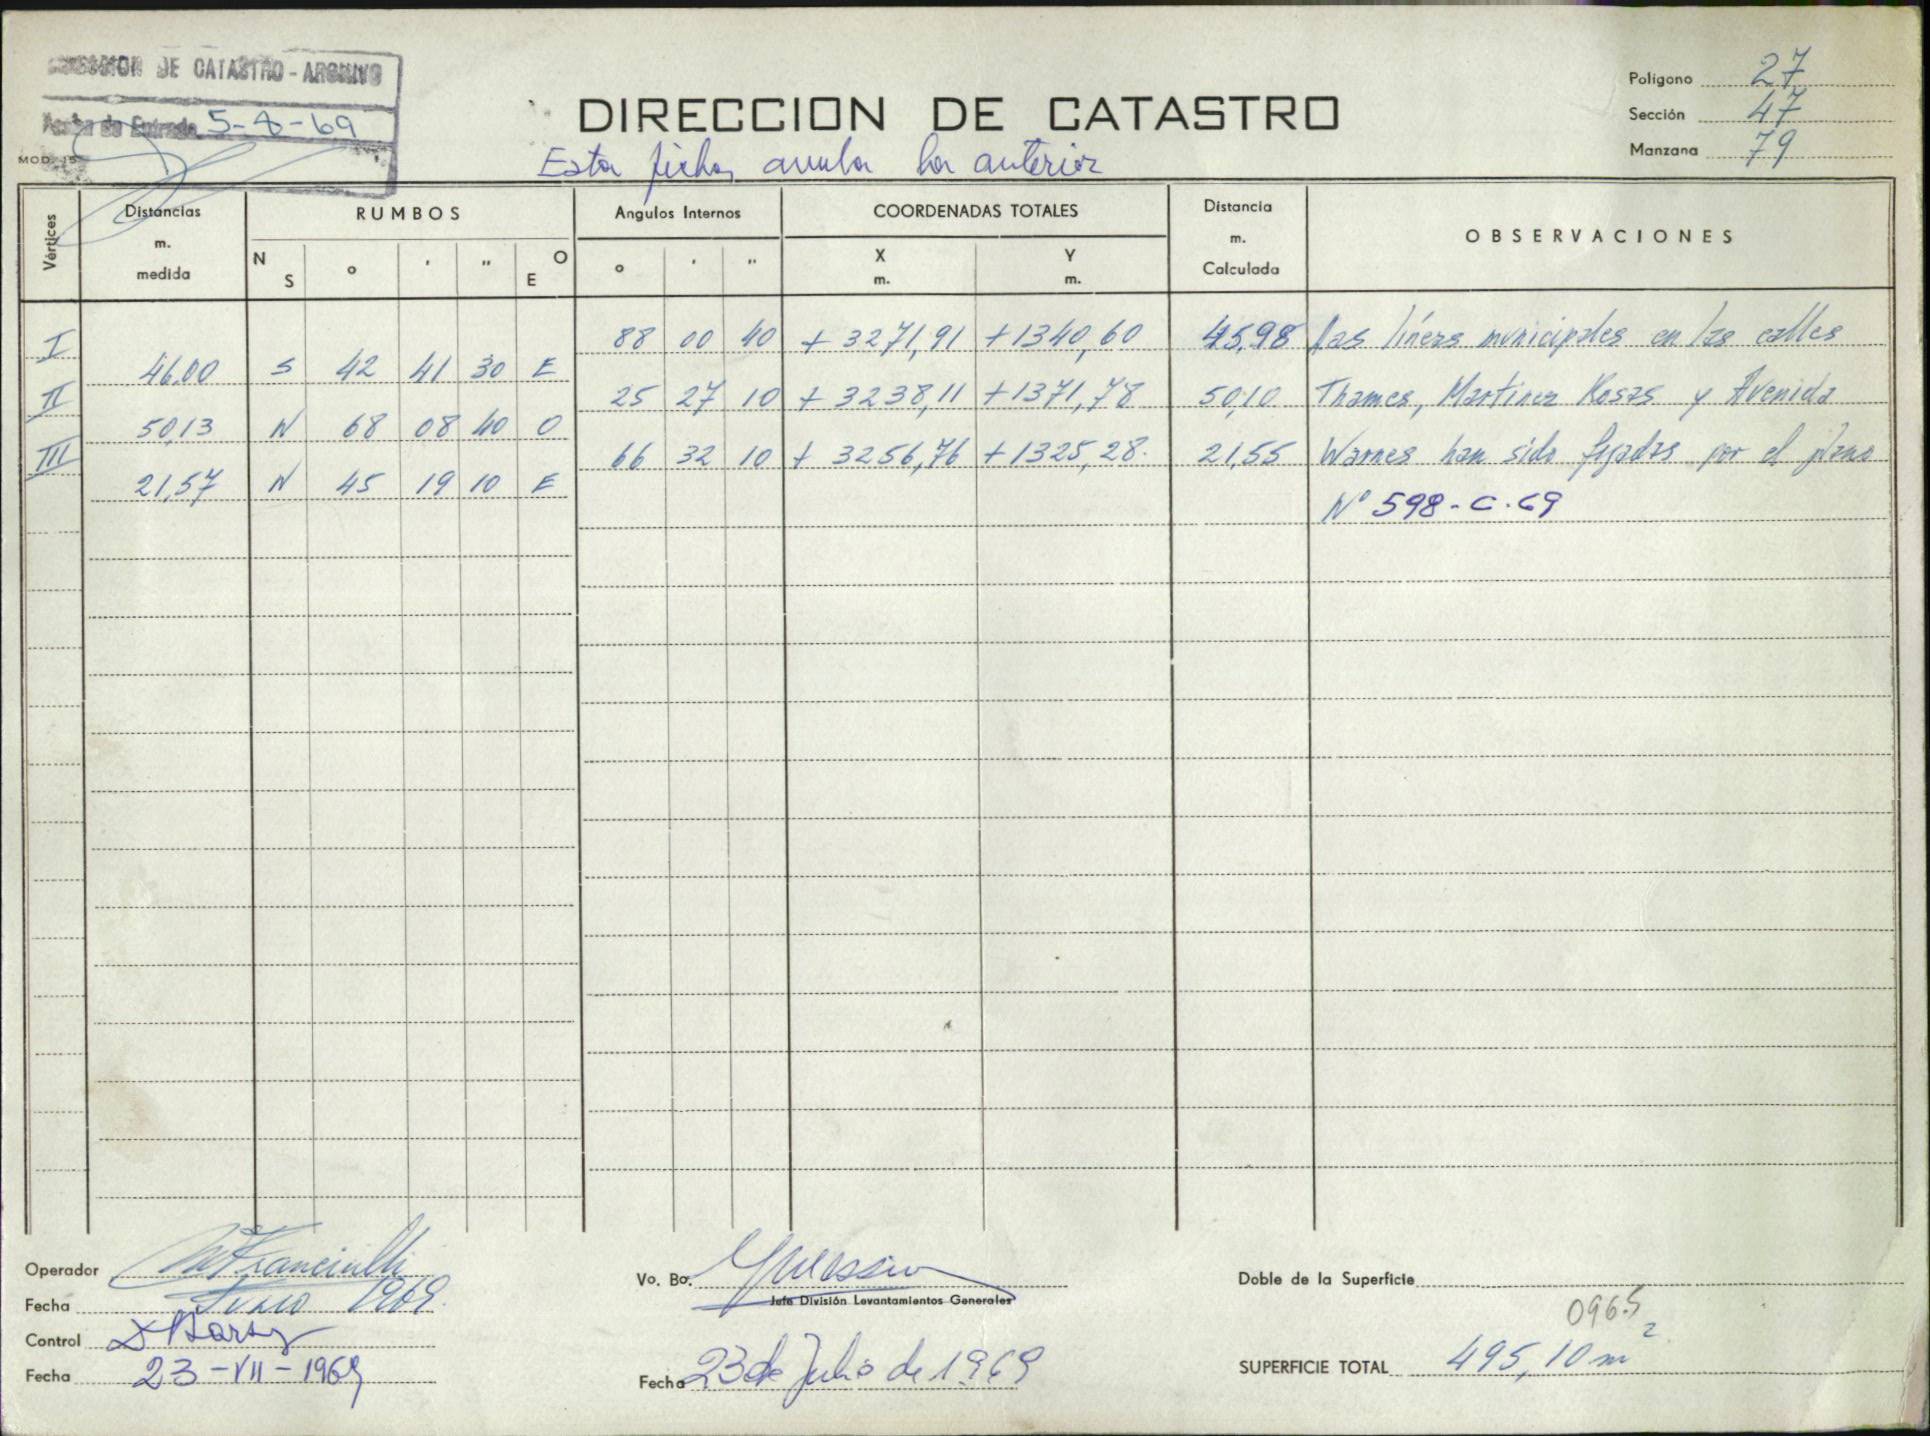 DIRECCION DE CATASTRO - ARCHIVO
Fecha de Entrada 5-8-69
MOD. 15
DIRECCION DE CATASTRO
Esta ficha anula la anterior
Polígono 27
Sección 47
Manzana 79
Vértices
Distancias m. medida
RUMBOS
N S ° ' " O E
Angulos Internos
° ' "
COORDENADAS TOTALES
X m. Y m.
Distancia m. Calculada
OBSERVACIONES
I 88 00 40 + 3271,91 + 1340,60 45,98 Las líneas municipales en las calles
46,00 S 42 41 30 E
II 25 27 10 + 3238,11 + 1371,78 50,10 Thames, Martinez Rosas y Avenida
50,13 N 68 08 40 O
III 66 32 10 + 3256,76 + 1325,28. 21,55 Warnes han sido fijadas por el plano
21,57 N 45 19 10 E
Nº 598-C-69
Operador
Fecha Junio 1969.
Control
Fecha 23-VII-1969
Vo. Bo.
Jefe División Levantamientos Generales
Fecha 23 de Julio de 1969
Doble de la Superficie
0965
SUPERFICIE TOTAL 495,10 m²